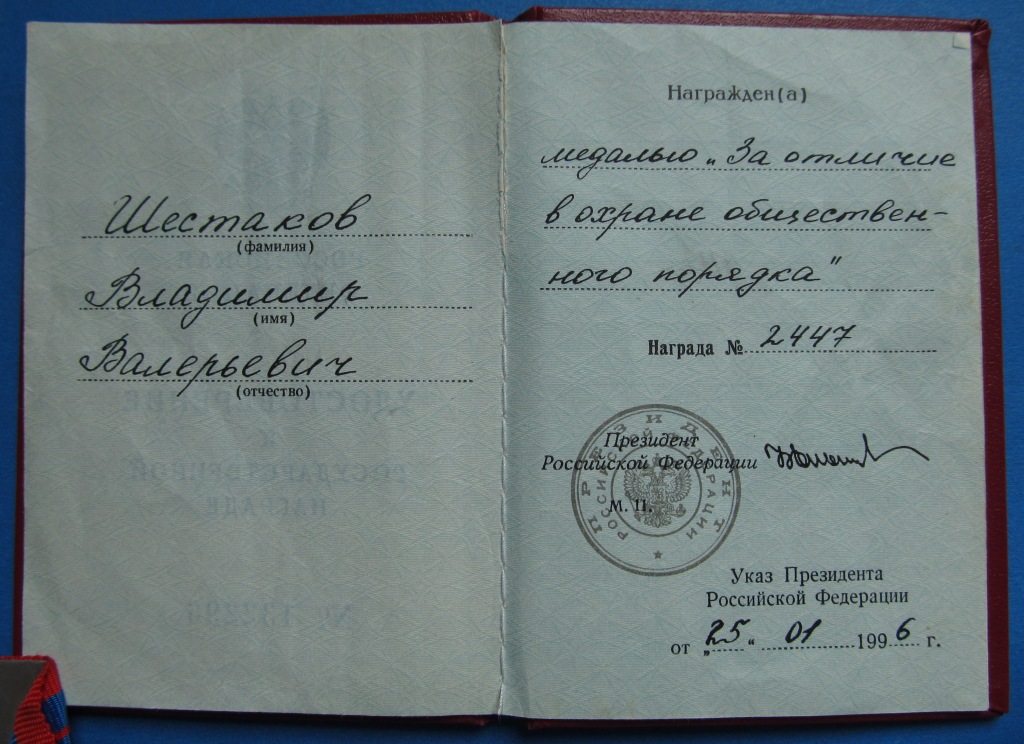 Шестаков
(фамилия)
Владимир
(имя)
Валерьевич
(отчество)
Награжден(а)
медалью „За отличие
в охране обществен-
ного порядка"
Награда № 2447
Президент
Российской Федерации
М. П.
ПРЕЗИДЕНТ
РОССИЙСКОЙ ФЕДЕРАЦИИ
Указ Президента
Российской Федерации
от „25" 01 1996 г.